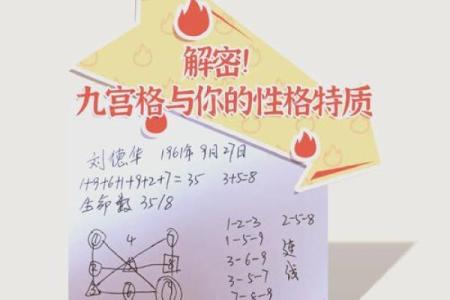 解密!
九宫格与你的性格特质
刘德华 1961年9月27日
1+9+6+1+9+2+7=35 3+5=8
生命数 35/8
1-2-3 2-5-8
1-5-9 连线
3-6-9
3-5-7
7-8-9
1 4 7
2 8
6 9